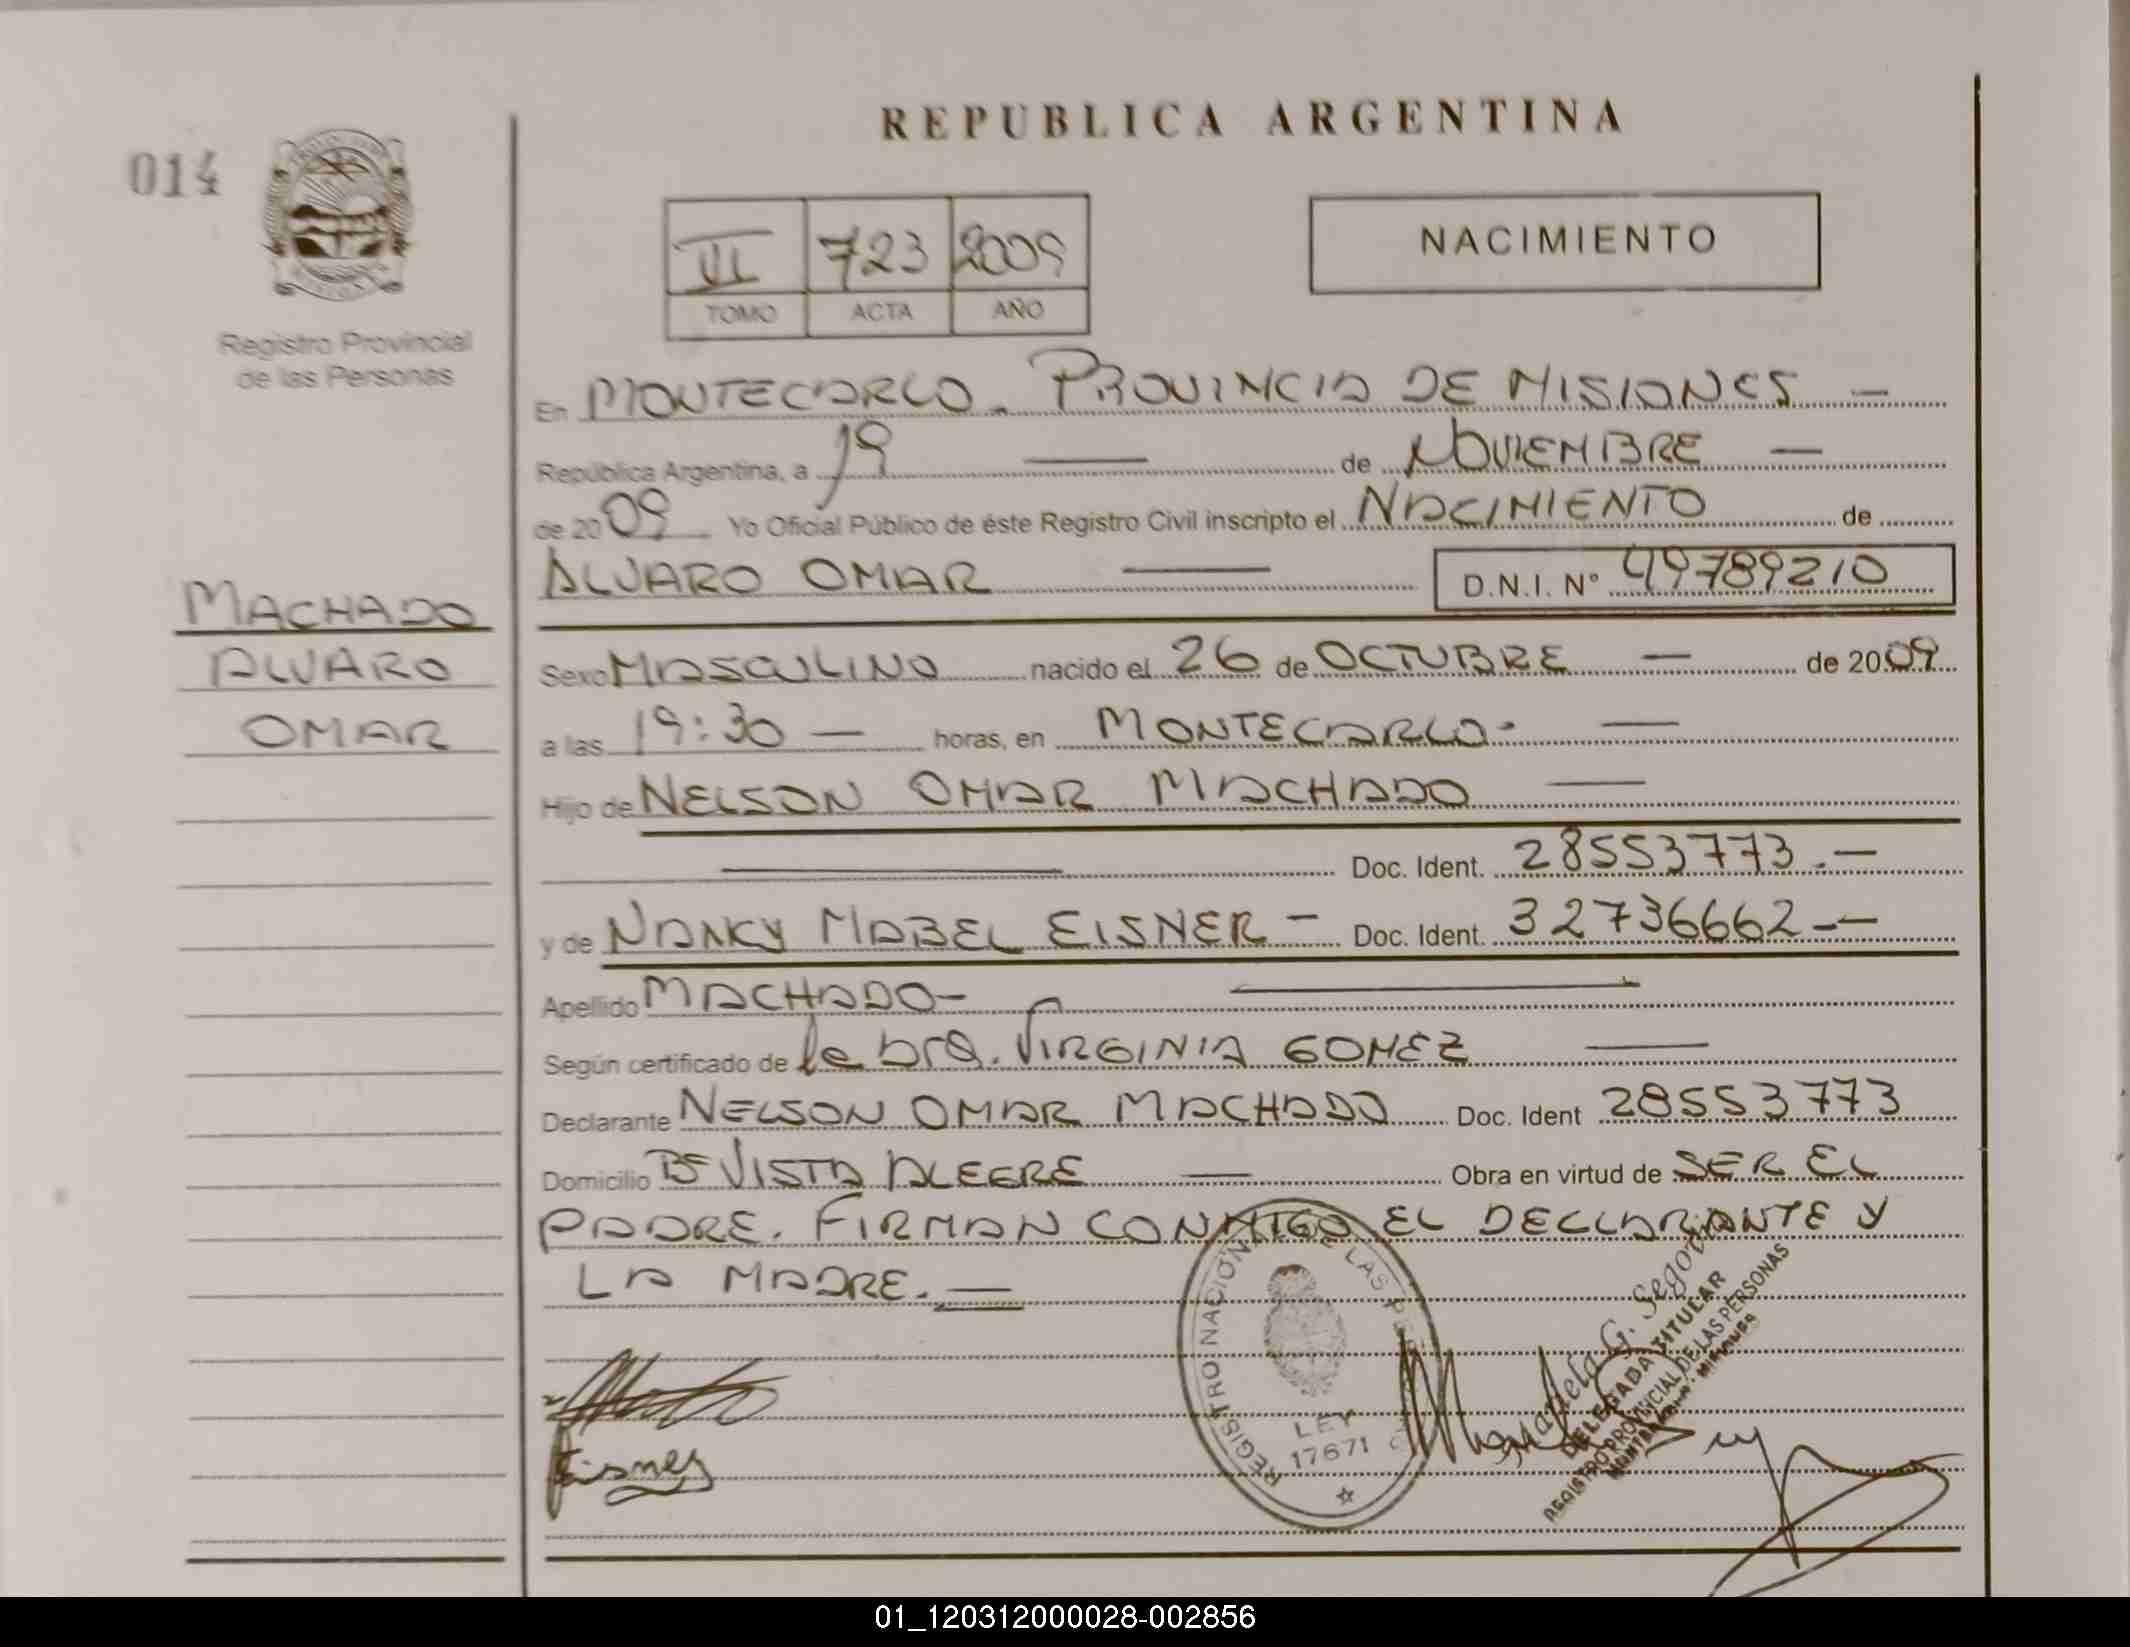 REPUBLICA ARGENTINA
014
NACIMIENTO
723 2009
TOMO ACTA AÑO
Registro Provincial
de las Personas
En MONTECARLO. PROVINCIA DE MISIONES —
República Argentina, a 19 — de NOVIEMBRE —
de 2009 Yo Oficial Público de éste Registro Civil inscripto el NACIMIENTO de
ALVARO OMAR — D.N.I. N° 49789210
MACHADO
ALVARO
OMAR
Sexo MASCULINO nacido el 26 de OCTUBRE — de 2009
a las 19:30 — horas, en MONTECARLO. —
Hijo de NELSON OMAR MACHADO —
— Doc. Ident. 28553773.—
y de NANCY MABEL EISNER — Doc. Ident. 32736662.—
Apellido MACHADO — —
Según certificado de la Dra. VIRGINIA GOMEZ —
Declarante NELSON OMAR MACHADO Doc. Ident 28553773
Domicilio Bº VISTA ALEGRE — Obra en virtud de SER EL
PADRE. FIRMAN CONMIGO EL DECLARANTE Y
LA MADRE. —
REGISTRO NACIONAL DE LAS PERSONAS
LEY
17671
G. Segovia
DELEGADA TITULAR
REGISTRO PROVINCIAL DE LAS PERSONAS
Eisner
01_120312000028-002856